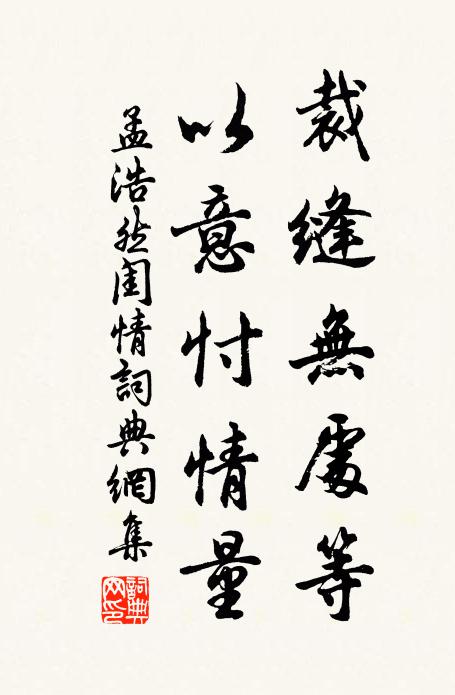 裁縫無處等
以意忖情量
孟浩然閨情詞典網集
詞典網印